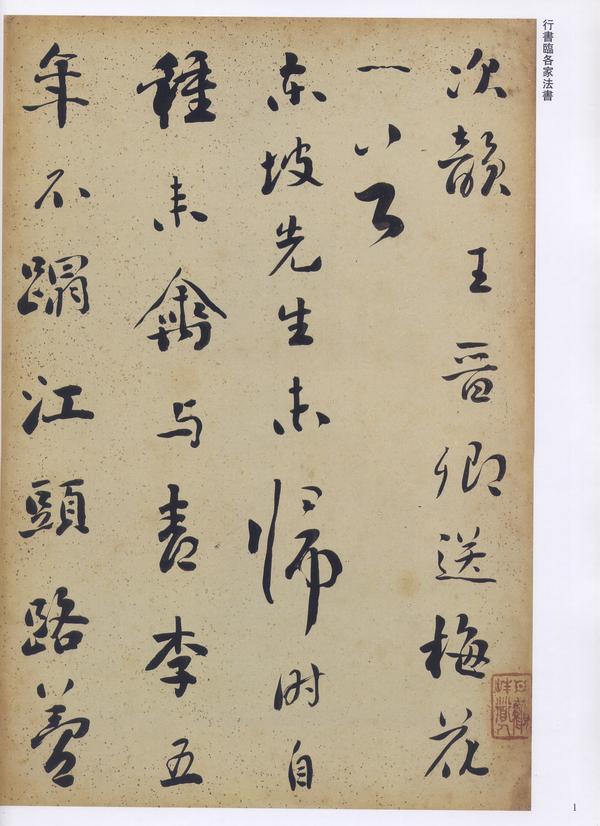 行書臨各家法書
次韻王晉卿送梅花
一首
東坡先生未歸時自
種来禽与青李五
年不蹋江頭路夢
1